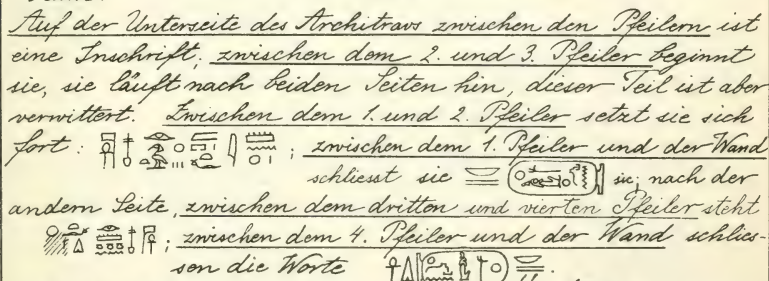 Auf der Unterseite des Architravs zwischen den Pfeilern ist
eine Inschrift, zwischen dem 2. und 3. Pfeiler beginnt
sie, sie läuft nach beiden Seiten hin, dieser Teil ist aber
verwittert. Zwischen dem 1. und 2. Pfeiler setzt sie sich
fort: ; zwischen dem 1. Pfeiler und der Wand
schliesst sie sic; nach der
andern Seite, zwischen dem dritten und vierten Pfeiler steht
; zwischen dem 4. Pfeiler und der Wand schlies-
sen die Worte .